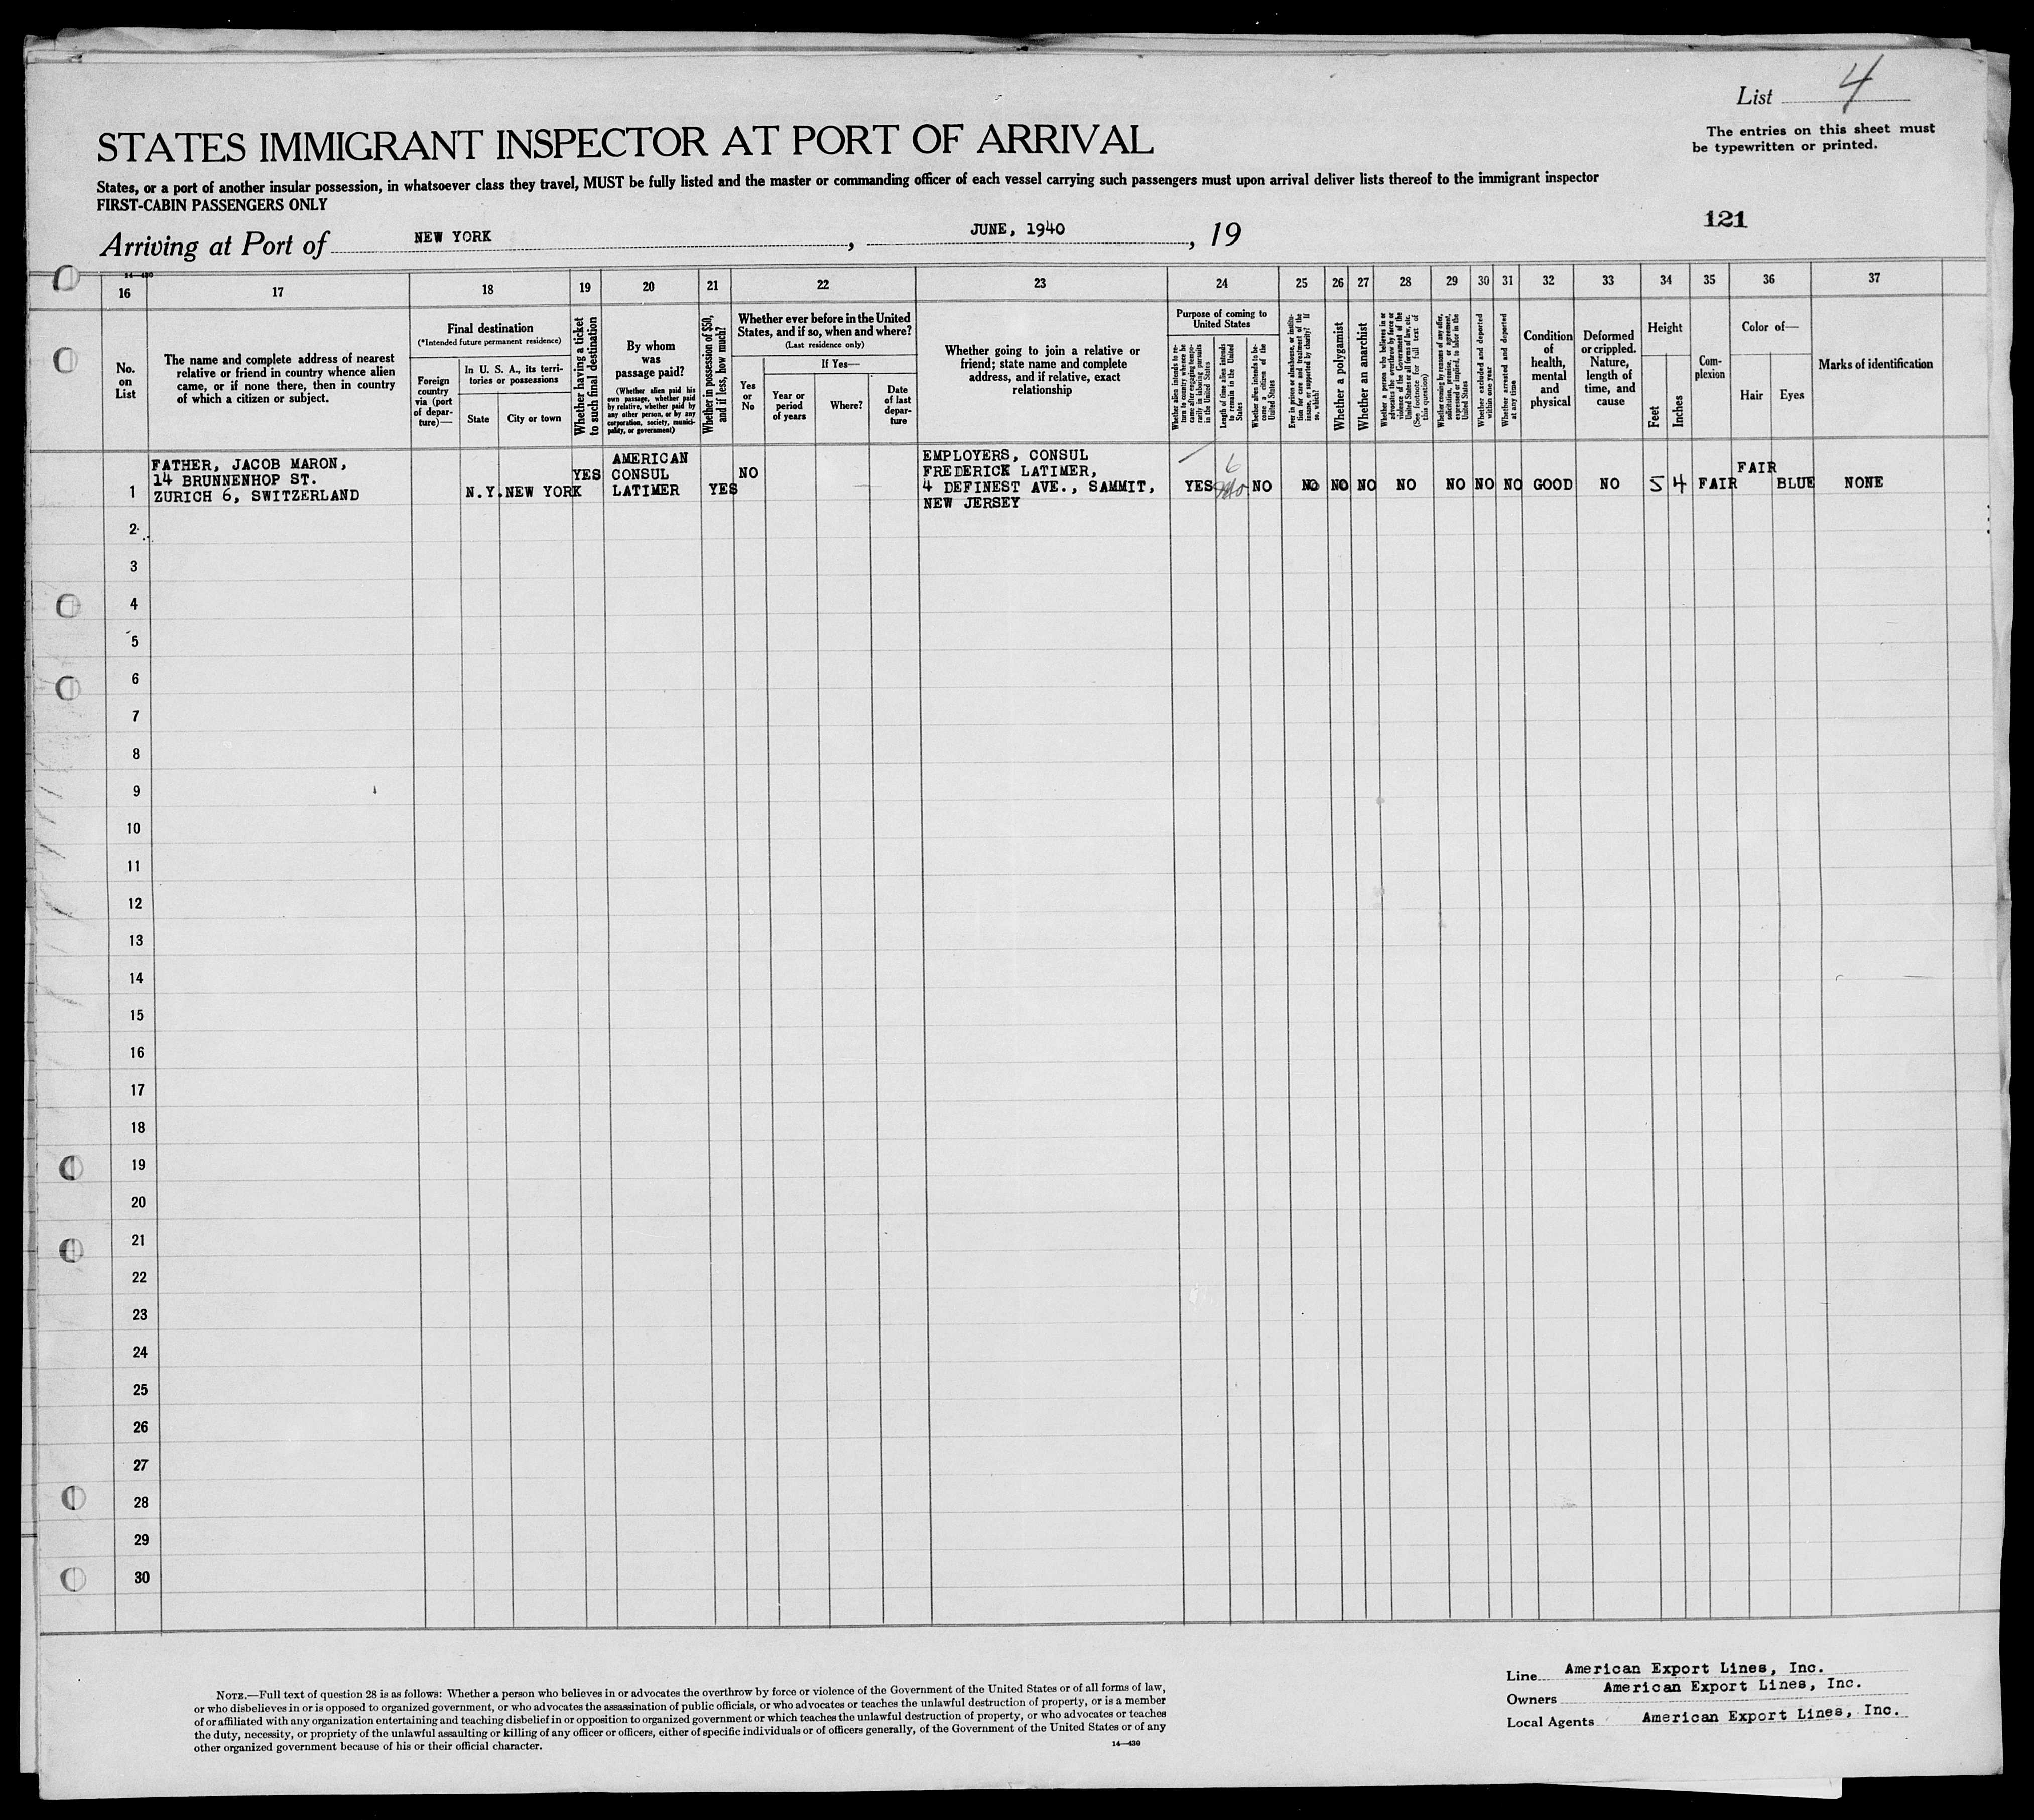 List 4
The entries on this sheet must
be typewritten or printed.
STATES IMMIGRANT INSPECTOR AT PORT OF ARRIVAL
States, or a port of another insular possession, in whatsoever class they travel, MUST be fully listed and the master or commanding officer of each vessel carrying such passengers must upon arrival deliver lists thereof to the immigrant inspector
FIRST-CABIN PASSENGERS ONLY
121
Arriving at Port of NEW YORK, JUNE, 1940, 19
14—430
16 17 18 19 20 21 22 23 24 25 26 27 28 29 30 31 32 33 34 35 36 37
No.
on
List
The name and complete address of nearest
relative or friend in country whence alien
came, or if none there, then in country
of which a citizen or subject.
Final destination
(*Intended future permanent residence)
Foreign
country
via (port
of depar-
ture)—
In U. S. A., its terri-
tories or possessions
State
City or town
Whether having a ticket
to such final destination
By whom
was
passage paid?
(Whether alien paid his
own passage, whether paid
by relative, whether paid by
any other person, or by any
corporation, society, munici-
pality, or government)
Whether in possession of $50,
and if less, how much?
Whether ever before in the United
States, and if so, when and where?
(Last residence only)
Yes
or
No
If Yes—
Year or
period
of years
Where?
Date
of last
depar-
ture
Whether going to join a relative or
friend; state name and complete
address, and if relative, exact
relationship
Purpose of coming to
United States
Whether alien intends to re-
turn to country whence he
came after engaging tempo-
rarily in laboring pursuits
in the United States
Length of time alien intends
to remain in the United
States
Whether alien intends to be-
come a citizen of the
United States
Ever in prison or almshouse, or institu-
tion for care and treatment of the
insane, or supported by charity? If
so, which?
Whether a polygamist
Whether an anarchist
Whether a person who believes in or
advocates the overthrow by force or
violence of the Government of the
United States or all forms of law, etc.
(See footnote for full text of
this question)
Whether coming by reasons of any offer,
solicitation, promise, or agreement,
expressed or implied, to labor in the
United States
Whether excluded and deported
within one year
Whether arrested and deported
at any time
Condition
of
health,
mental
and
physical
Deformed
or crippled.
Nature,
length of
time, and
cause
Height
Feet
Inches
Com-
plexion
Color of—
Hair Eyes
Marks of identification
FATHER, JACOB MARON,
14 BRUNNENHOP ST.
ZURICH 6, SWITZERLAND
N.Y. NEW YORK
YES
AMERICAN
CONSUL
LATIMER
YES
NO
EMPLOYERS, CONSUL
FREDERICK LATIMER,
4 DEFINEST AVE., SAMMIT,
NEW JERSEY
YES 6 NO NO NO NO NO NO NO NO GOOD NO 5 4 FAIR FAIR BLUE NONE
1
2
3
4
5
6
7
8
9
10
11
12
13
14
15
16
17
18
19
20
21
22
23
24
25
26
27
28
29
30
NOTE.—Full text of question 28 is as follows: Whether a person who believes in or advocates the overthrow by force or violence of the Government of the United States or of all forms of law,
or who disbelieves in or is opposed to organized government, or who advocates the assassination of public officials, or who advocates or teaches the unlawful destruction of property, or is a member
of or affiliated with any organization entertaining and teaching disbelief in or opposition to organized government or which teaches the unlawful destruction of property, or who advocates or teaches
the duty, necessity, or propriety of the unlawful assaulting or killing of any officer or officers, either of specific individuals or of officers generally, of the Government of the United States or of any
other organized government because of his or their official character.
14—430
Line American Export Lines, Inc.
Owners American Export Lines, Inc.
Local Agents American Export Lines, Inc.